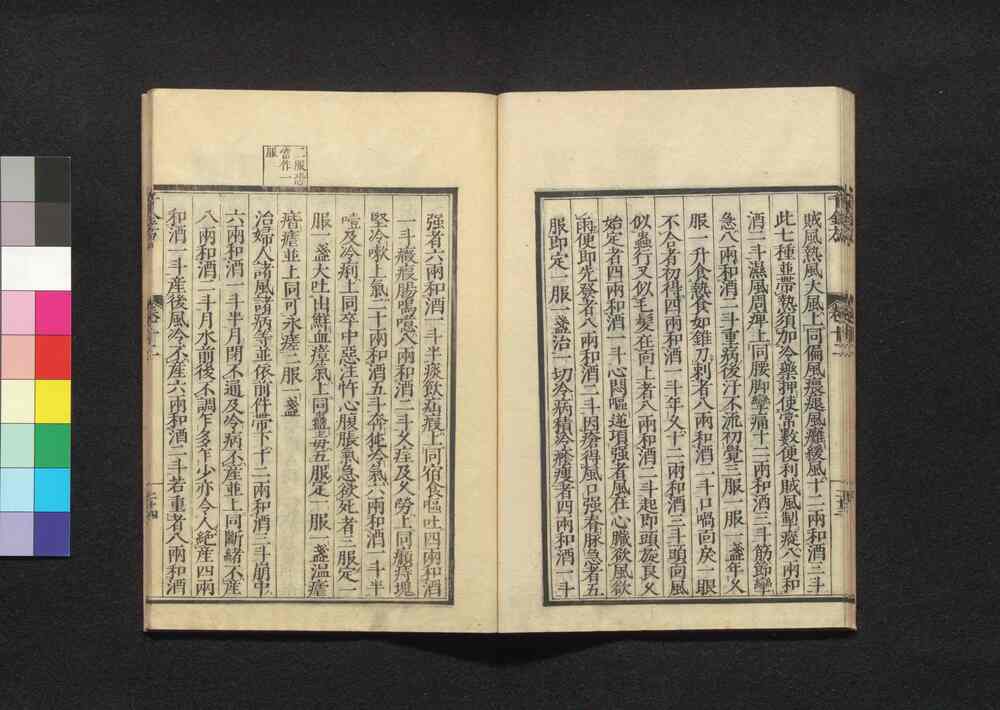 賊風熱風大風上同偏風瘓㾼風癱緩風十二兩和酒三斗
此七種並帶熱須加冷藥押使常數便利賊風掣瘲八兩和
酒二斗濕風周痺上同腰脚攣痛十二兩和酒三斗筋節攣
急八兩和酒二斗重病後汗不流初覺三服一服一盞年久
服一升食熱食如錐刀刺者八兩和酒二斗口喎向一眼
不合者初得四兩和酒一斗年久十二兩和酒三斗頭向風
似蟲行又似毛髮在向上者八兩和酒二斗起即頭旋良久
始定者四兩和酒一斗心悶嘔逆項强者風在心臟欲風欲
雨便即先發者八兩和酒二斗因瘡得風口强脊脉急者五
服即定一服一盞治一切冷病積冷癥瘦者四兩和酒一斗
强者六兩和酒一斗半痰飲疝瘕上同宿食嘔吐四兩和酒
一斗癥瘕腸鳴噫八兩和酒二斗久症及久勞上同癖痔塊
堅冷嗽上氣二十兩和酒五斗奔㹠冷氣六兩和酒一斗半
噎及冷痢上同卒中惡注忤心腹脹氣急欲死者三服定一
服一盞大吐出鮮血瘴氣上同蠱毒五服定一服一盞温瘧
㾱瘧並上同可永瘥二服一盞
治婦人諸風諸病等並依前件帶下十二兩和酒三斗崩中
六兩和酒一斗半月閉不通及冷病不產並上同斷緒不產
八兩和酒二斗月水前後不調乍多乍少亦令人絶産四兩
和酒一斗産後風冷不產六兩和酒二斗若重者八兩和酒
二服恐
當作一
服